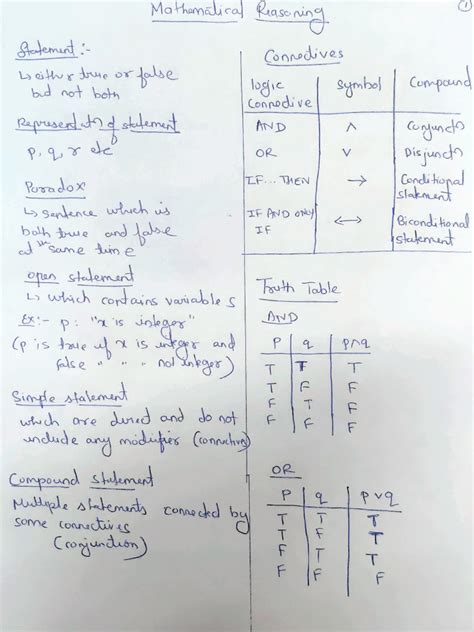 Mathematical Reasoning
1
Statement :-
↳ either true or false
but not both
Representatn of statement
p, q, r etc
Paradox
↳ sentence which is
both true and false
at the same time
open statement
↳ which contains variables
Ex:- p: "x is integer"
(p is true if x is integer and
false " " " not integer)
Simple statement
which are direct and do not
include any modifier (connective)
Compound statement
Multiple statements connected by
some connectives
(conjunction)
Connectives
logic connective | symbol | Compound
AND | ∧ | Conjunctn
OR | ∨ | Disjunctn
IF...THEN | → | Conditional statement
IF AND ONLY IF | ↔ | Biconditional statement
Truth Table
AND
P | q | p∧q
T | T | T
T | F | F
F | T | F
F | F | F
OR
P | q | p∨q
T | T | T
T | F | T
F | T | T
F | F | F